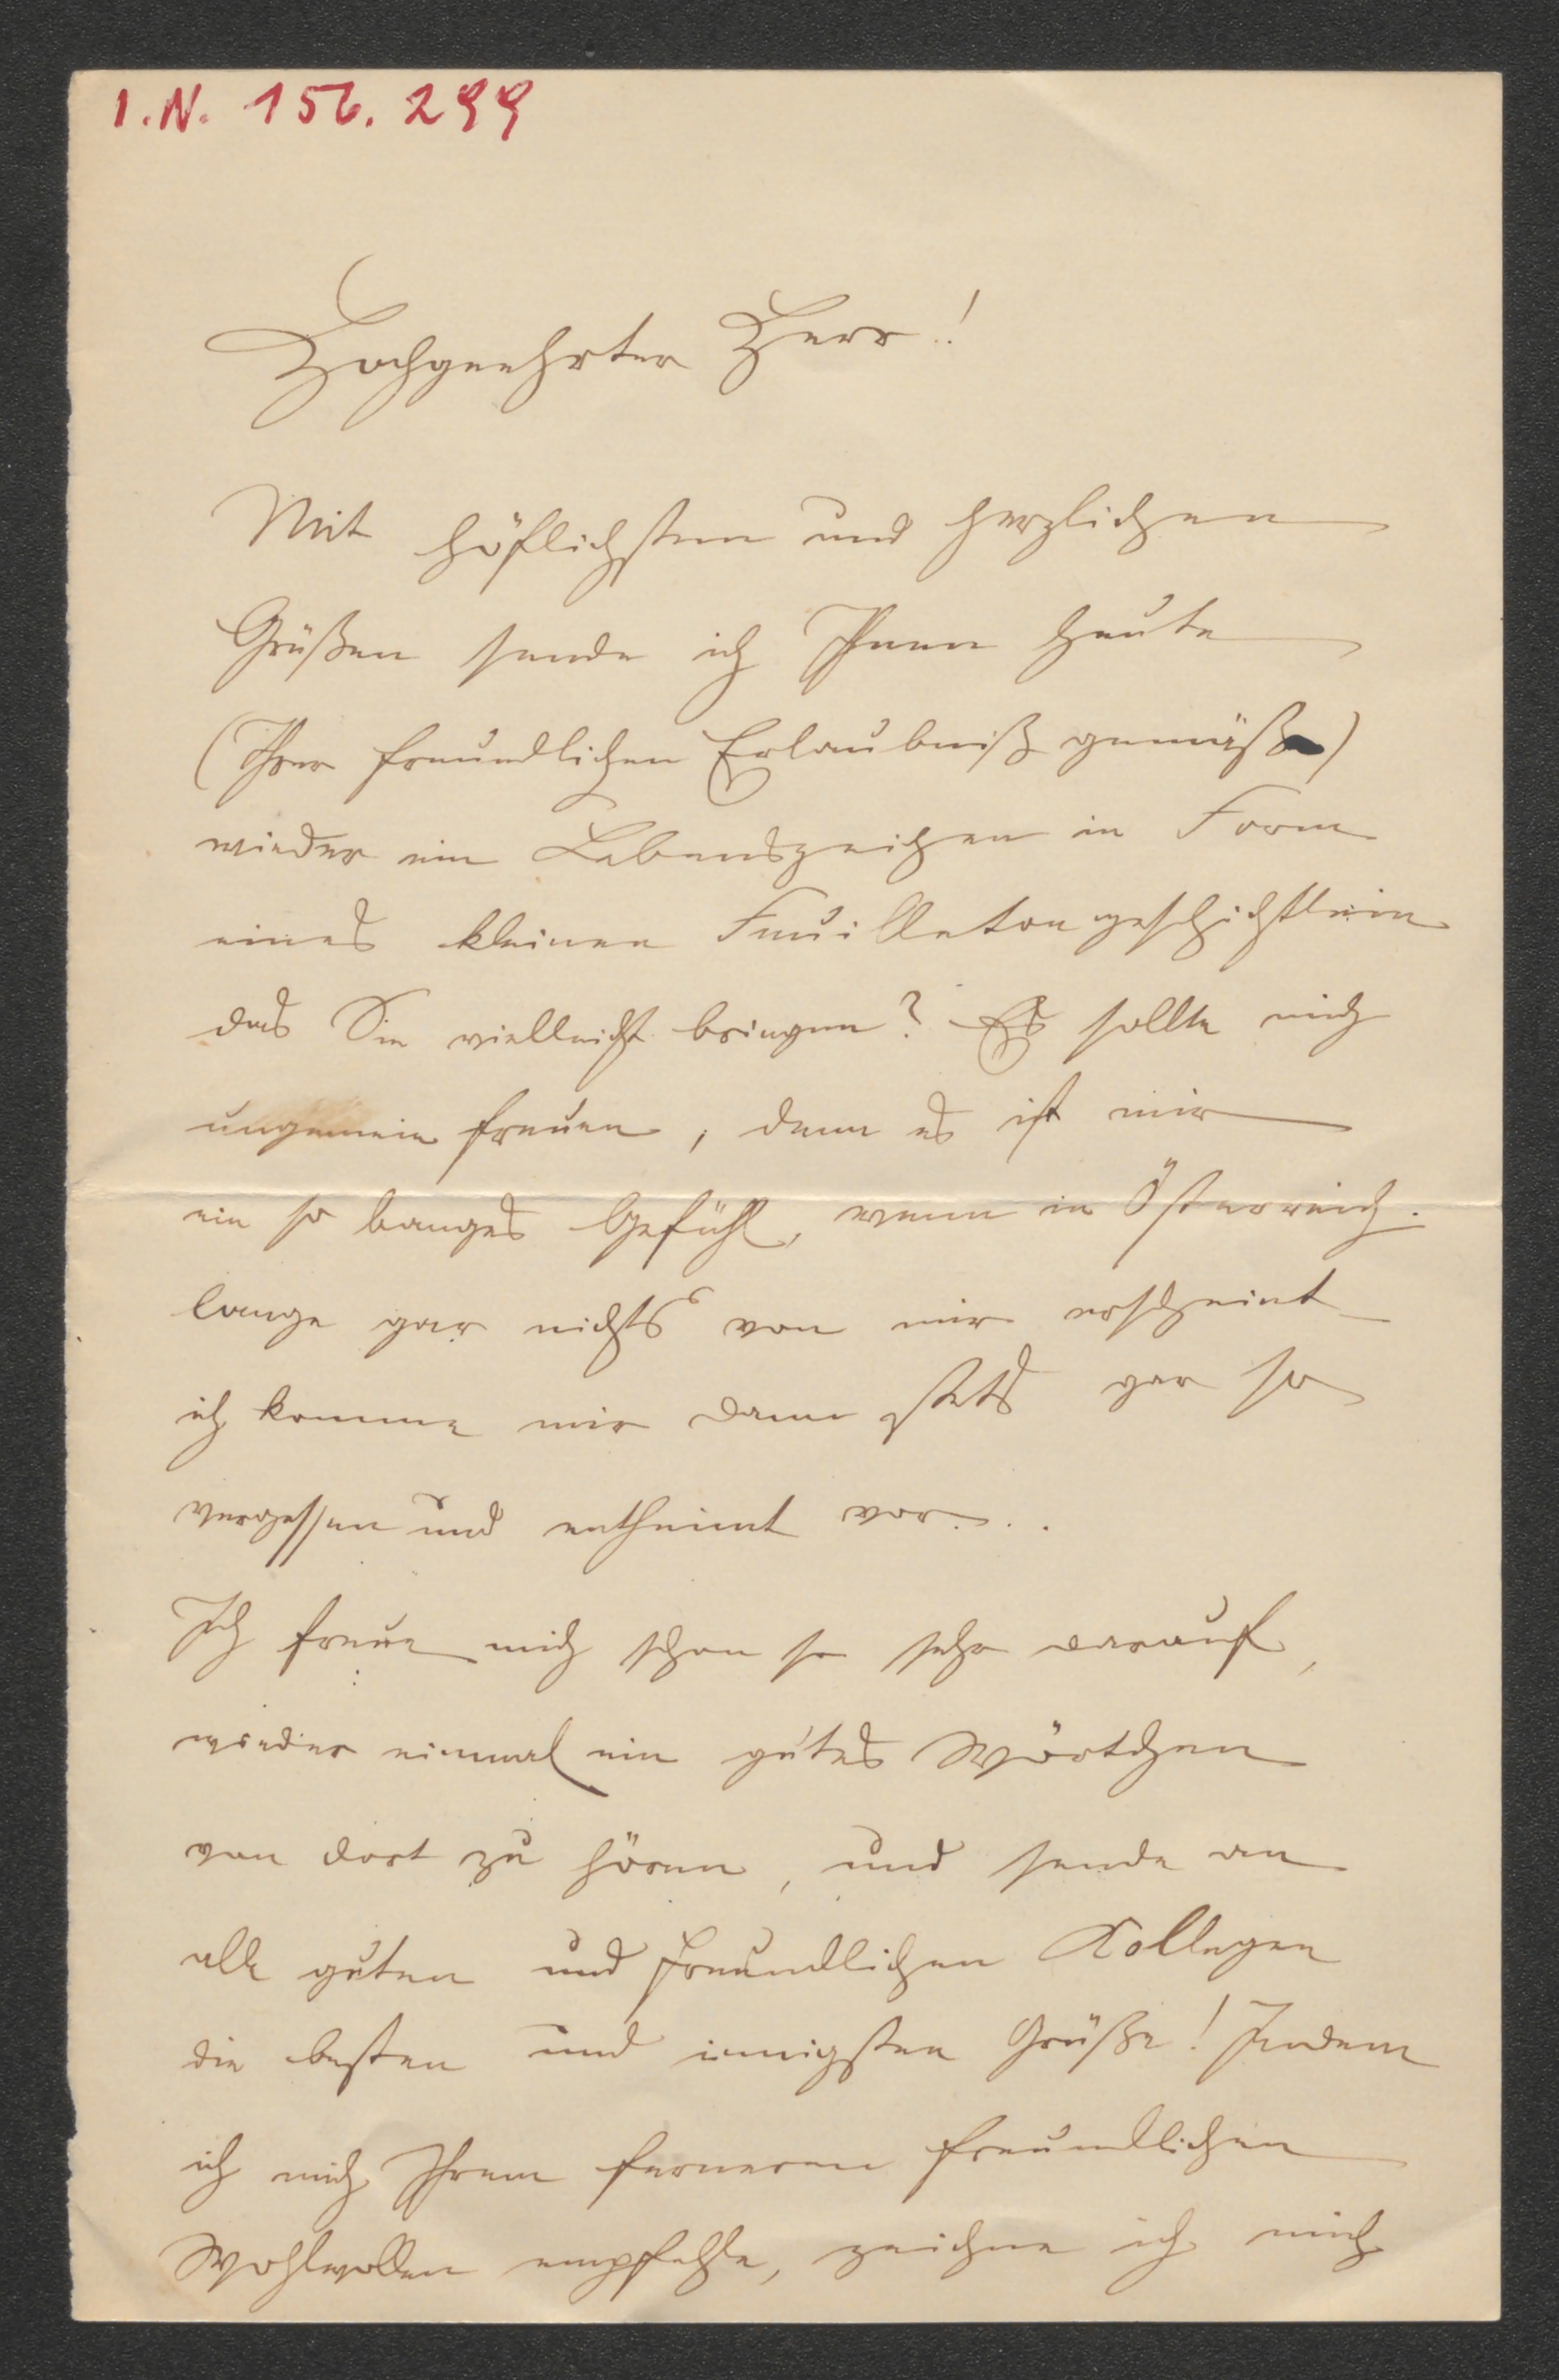 I.N. 156.299
Hochgeehrter Herr!
Mit höflichsten und herzlichen
Grüßen sende ich Ihnen heute
(Ihrer freundlichen Erlaubniß gemäß)
wieder ein Lebenszeichen in Form
eines kleinen Feuilletongeschichtlein
das Sie vielleicht bringen? Es sollte mich
ungemein freuen, denn es ist mir
ein so banges Gefühl, wenn in Österreich
lange gar nichts von mir erscheint
ich komme mir dann stets gar so
vergessen und entheimt vor...
Ich freue mich schon so sehr darauf,
wieder einmal ein gutes Wörtchen
von dort zu hören, und sende an
alle guten und freundlichen Kollegen
die besten und innigsten Grüße! Indem
ich mich Ihrem ferneren freundlichen
Wohlwollen empfehle, zeichne ich mich